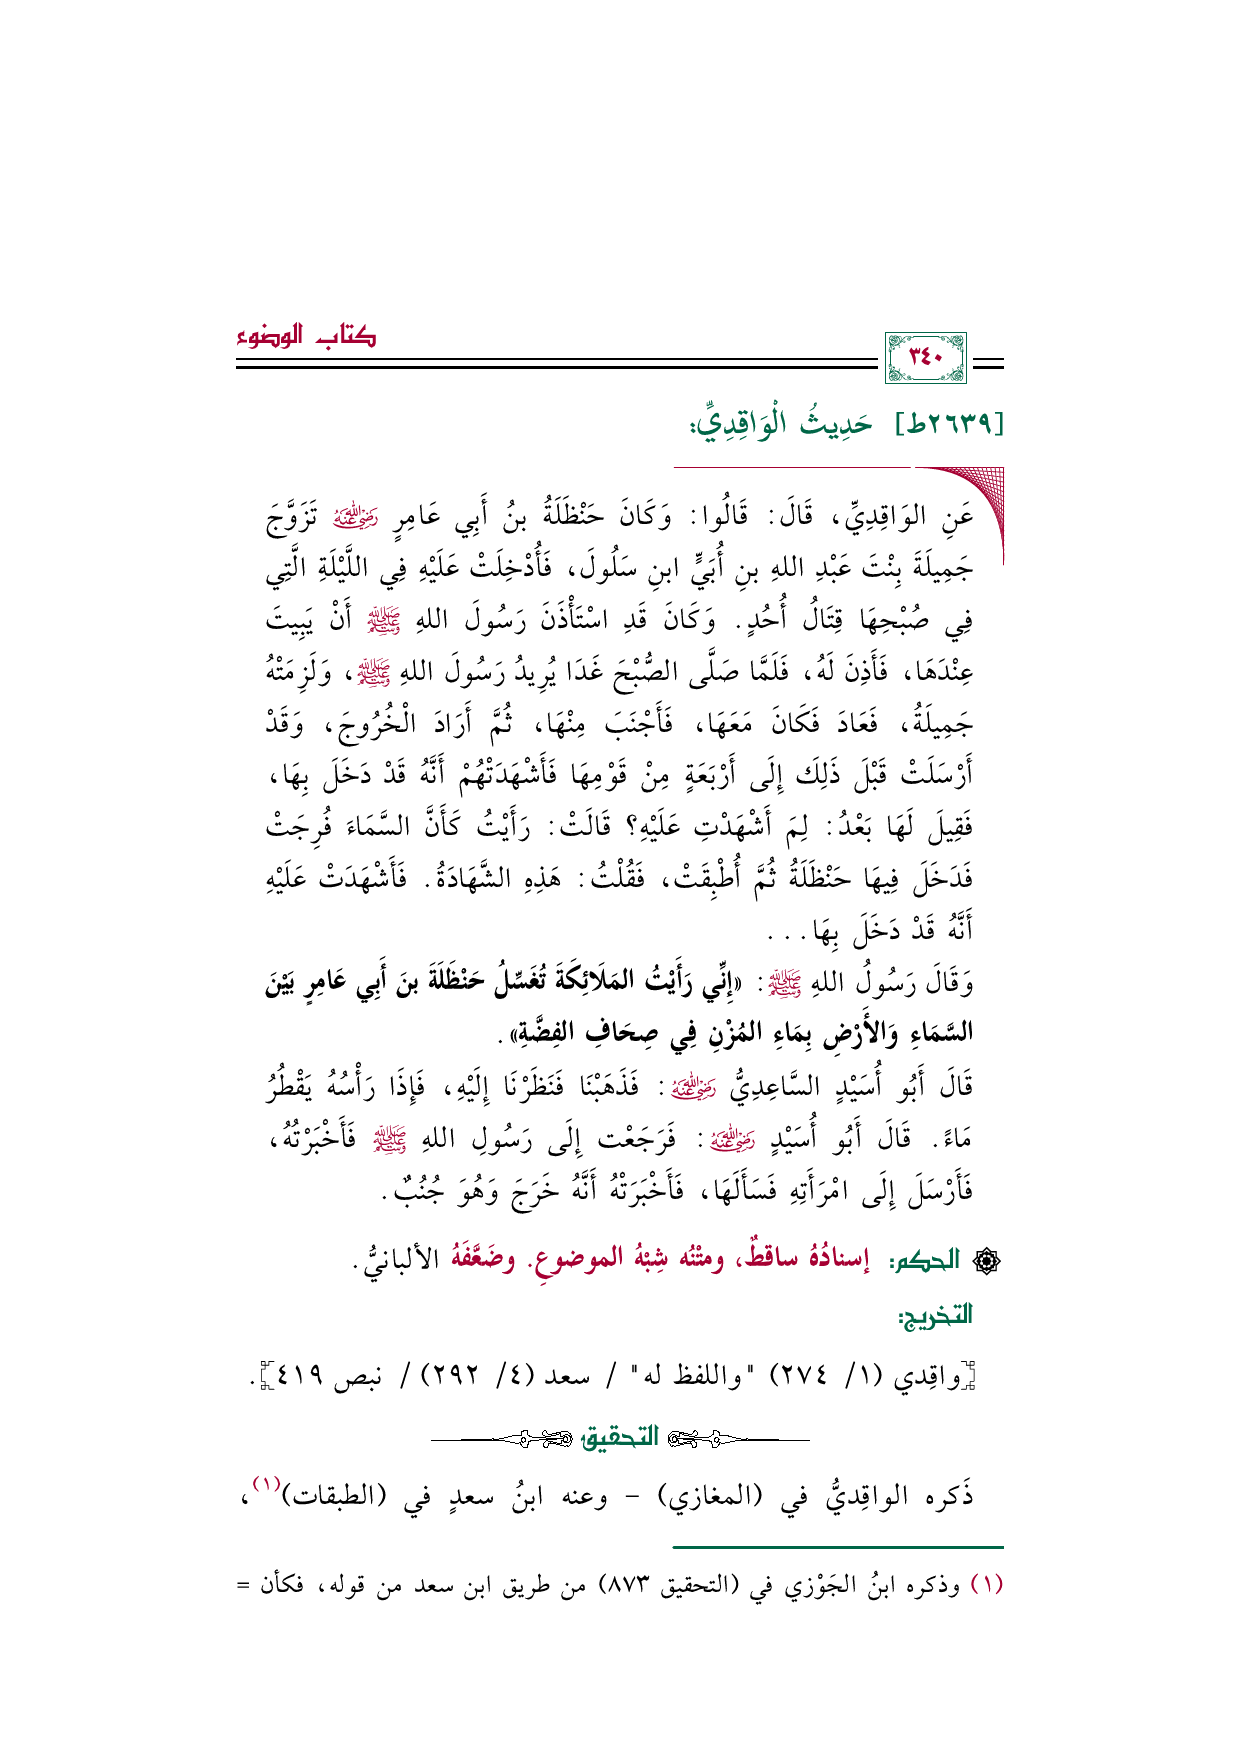 كتاب الوضوء
٣٤٠
[٢٦٣٩ط] حَدِيثُ الْوَاقِدِيِّ:
عَنِ الوَاقِدِيِّ، قَالَ: قَالُوا: وَكَانَ حَنْظَلَةُ بنُ أَبِي عَامِرٍ رضي الله عنه تَزَوَّجَ
جَمِيلَةَ بِنْتَ عَبْدِ اللهِ بنِ أُبَيٍّ ابنِ سَلُولَ، فَأُدْخِلَتْ عَلَيْهِ فِي اللَّيْلَةِ الَّتِي
فِي صُبْحِهَا قِتَالُ أُحُدٍ. وَكَانَ قَدِ اسْتَأْذَنَ رَسُولَ اللهِ ﷺ أَنْ يَبِيتَ
عِنْدَهَا، فَأَذِنَ لَهُ، فَلَمَّا صَلَّى الصُّبْحَ غَدَا يُرِيدُ رَسُولَ اللهِ ﷺ، وَلَزِمَتْهُ
جَمِيلَةُ، فَعَادَ فَكَانَ مَعَهَا، فَأَجْنَبَ مِنْهَا، ثُمَّ أَرَادَ الْخُرُوجَ، وَقَدْ
أَرْسَلَتْ قَبْلَ ذَلِكَ إِلَى أَرْبَعَةٍ مِنْ قَوْمِهَا فَأَشْهَدَتْهُمْ أَنَّهُ قَدْ دَخَلَ بِهَا،
فَقِيلَ لَهَا بَعْدُ: لِمَ أَشْهَدْتِ عَلَيْهِ؟ قَالَتْ: رَأَيْتُ كَأَنَّ السَّمَاءَ فُرِجَتْ
فَدَخَلَ فِيهَا حَنْظَلَةُ ثُمَّ أُطْبِقَتْ، فَقُلْتُ: هَذِهِ الشَّهَادَةُ. فَأَشْهَدَتْ عَلَيْهِ
أَنَّهُ قَدْ دَخَلَ بِهَا...
وَقَالَ رَسُولُ اللهِ ﷺ: «إِنِّي رَأَيْتُ المَلَائِكَةَ تُغَسِّلُ حَنْظَلَةَ بنَ أَبِي عَامِرٍ بَيْنَ
السَّمَاءِ وَالأَرْضِ بِمَاءِ المُزْنِ فِي صِحَافِ الفِضَّةِ».
قَالَ أَبُو أُسَيْدٍ السَّاعِدِيُّ رضي الله عنه: فَذَهَبْنَا فَنَظَرْنَا إِلَيْهِ، فَإِذَا رَأْسُهُ يَقْطُرُ
مَاءً. قَالَ أَبُو أُسَيْدٍ رضي الله عنه: فَرَجَعْت إِلَى رَسُولِ اللهِ ﷺ فَأَخْبَرْتُهُ،
فَأَرْسَلَ إِلَى امْرَأَتِهِ فَسَأَلَهَا، فَأَخْبَرَتْهُ أَنَّهُ خَرَجَ وَهُوَ جُنُبٌ.
الحكم: إسنادُهُ ساقطٌ، ومتْنُه شِبْهُ الموضوعِ. وضَعَّفَهُ الألبانيُّ.
التخريج:
[واقِدي (١/ ٢٧٤) "واللفظ له" / سعد (٤/ ٢٩٢) / نبص ٤١٩].
التحقيق
ذَكره الواقِديُّ في (المغازي) – وعنه ابنُ سعدٍ في (الطبقات)(١)،
(١) وذكره ابنُ الجَوْزي في (التحقيق ٨٧٣) من طريق ابن سعد من قوله، فكأن =